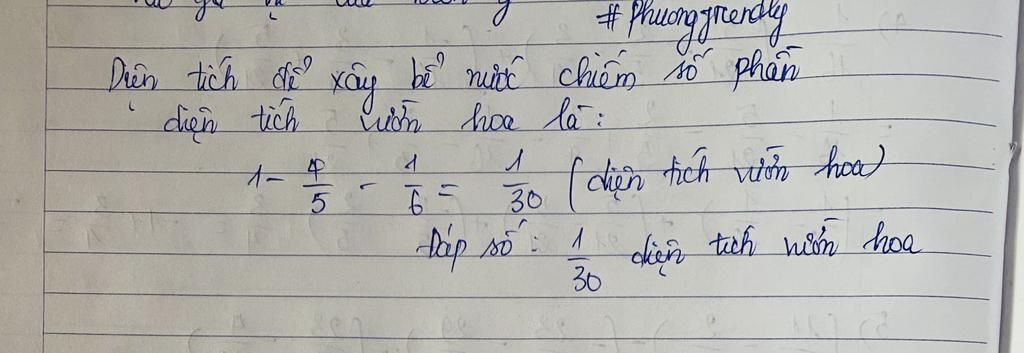 #Phuonggreendly
Diện tích để xây bể nước chiếm số phần
diện tích vườn hoa là:
1 - 4/5 - 1/6 = 1/30 (diện tích vườn hoa)
Đáp số: 1/30 diện tích vườn hoa